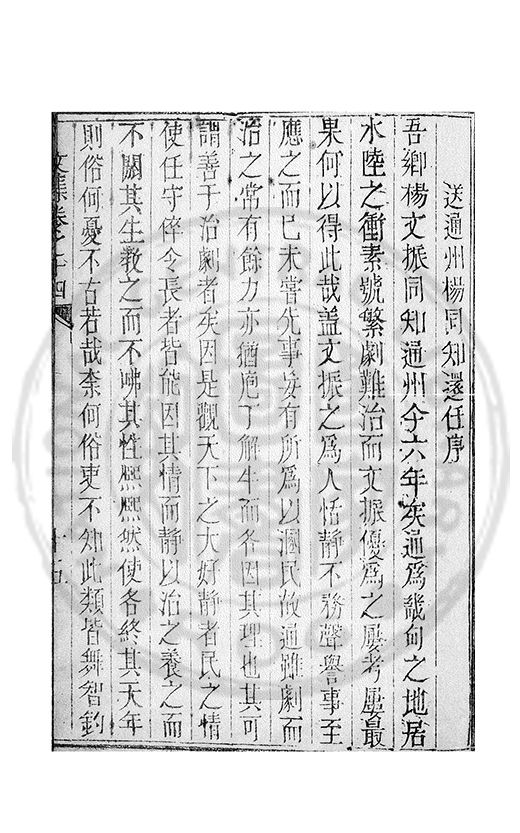 送通州楊同知還任序
吾鄉楊文振同知通州今六年矣通為畿甸之地居
水陸之衝素號繁劇難治而文振優為之屢考屢最
果何以得此哉盖文振之為人恬靜不務聲譽事至
應之而已未嘗先事妄有所為以溷民故通雖劇而
治之常有餘力亦猶庖丁解牛而各因其理也其可
謂善于治劇者矣因是觀天下之大好靜者民之情
使任守倅令長者皆能因其情而靜以治之養之而
不闗其生教之而不咈其性熈熈然使各終其天年
則俗何憂不古若哉柰何俗吏不知此類皆舞智釣
文集卷之十四